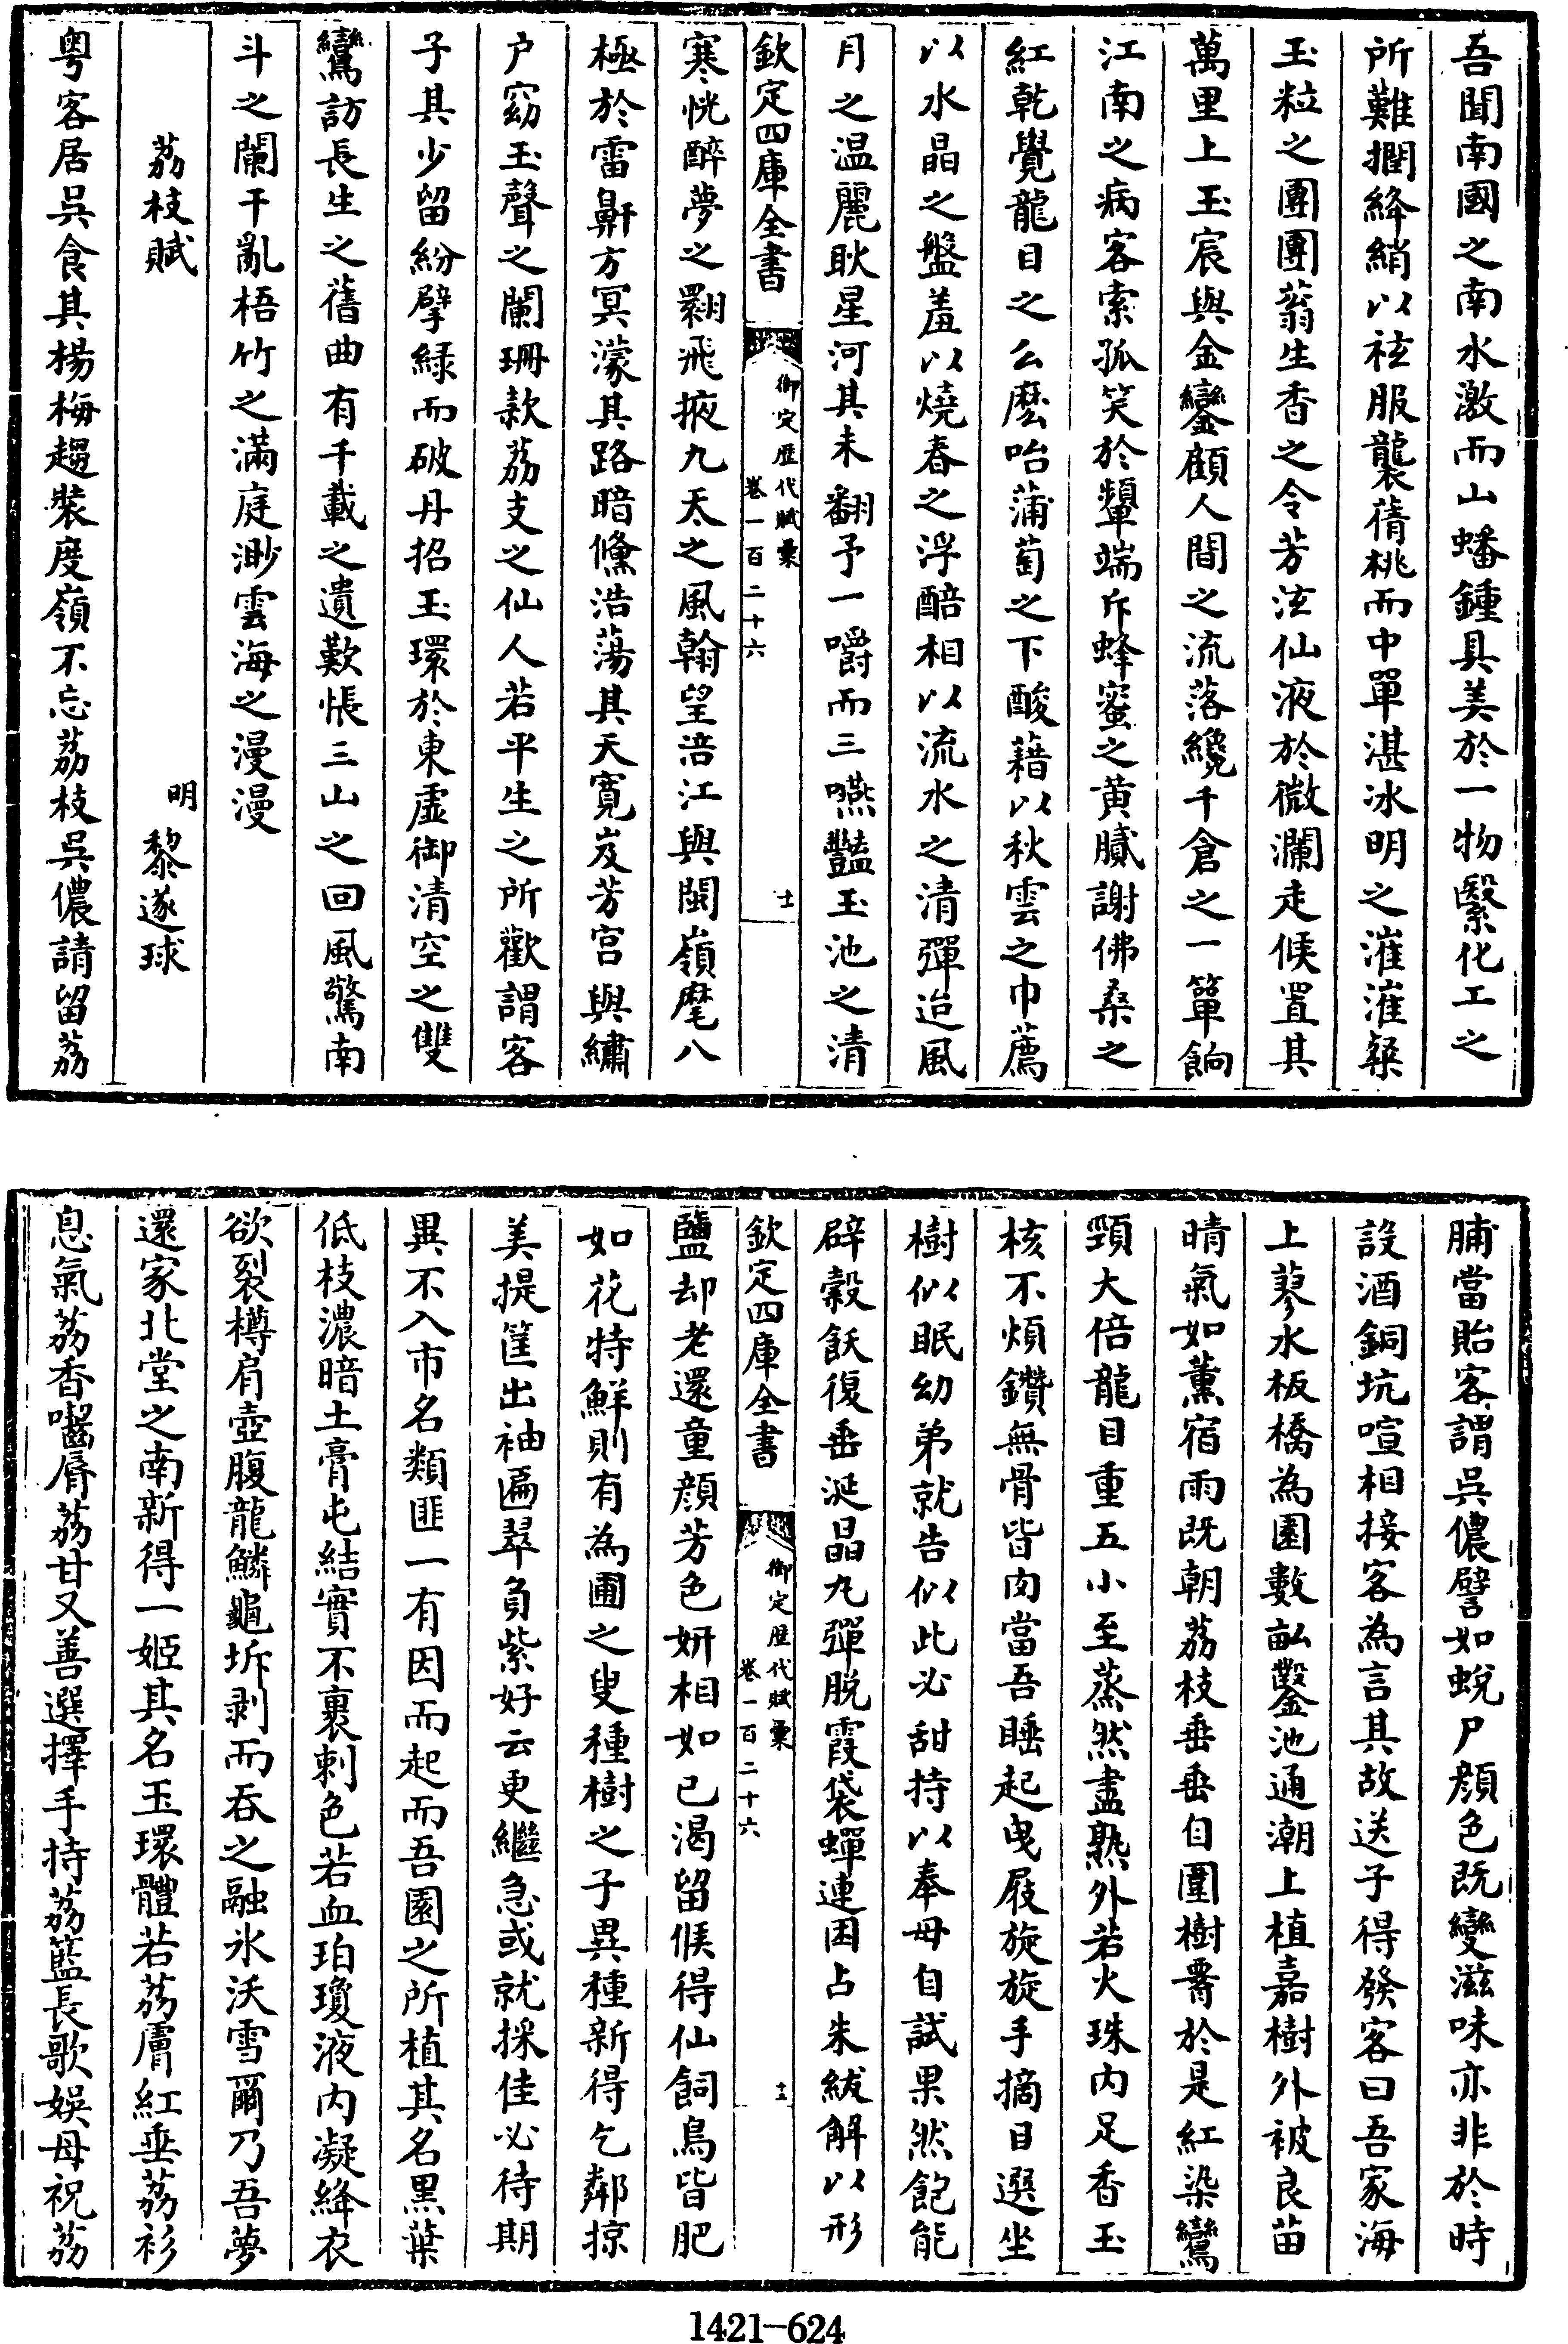 吾聞南國之南水激而山蟠鍾具美於一物緊化工之
所難擱絳綃以袨服襲蒨桃而中單湛冰明之漼漼粲
玉粒之團團蓊生香之令芳泫仙液於微瀾走候置其
萬里上玉宸與金鑾顧人間之流落纔千倉之一簞餉
江南之病客索孤笑於顰端斥蜂蜜之黄膩謝佛桑之
紅乾覺龍目之么麽咍蒲萄之下酸藉以秋雲之巾薦
以水晶之盤羞以燒春之浮醅相以流水之清彈迨風
月之温麗耿星河其未翻予一嚼而三嚥豔玉池之清
欽定四庫全書
御定歴代賦彙
卷一百二十六
十一
寒恍醉夢之翾飛掖九天之風翰望涪江與閩嶺麾八
極於雷鼾方冥濛其路暗儵浩蕩其天寛岌芳宫與繡
户窈玉聲之闌珊款荔支之仙人若平生之所歡謂客
子其少留紛擘緑而破丹招玉環於東虚御清空之雙
鸞訪長生之舊曲有千載之遺歎悵三山之回風驚南
斗之闌干亂梧竹之滿庭渺雲海之漫漫
荔枝賦
明 黎遂球
粤客居吳食其楊梅趨裝度嶺不忘荔枝吳儂請留荔
脯當貽客謂吳儂譬如蜕尸顔色既變滋味亦非於時
設酒銅坑喧相接客為言其故送子得發客曰吾家海
上蓼水板橋為園數畝鑿池通潮上植嘉樹外被良苗
晴氣如薰宿雨既朝荔枝垂垂自圍樹霱於是紅染鸞
頸大倍龍目重五小至蒸然盡熟外若火珠内足香玉
核不煩鑽無骨皆肉當吾睡起曳屐旋旋手摘目選坐
樹似眠幼弟就告似此必甜持以奉母自試果然飽能
辟穀飫復垂涎晶丸彈脱霞袋蟬連困占朱紱解以形
鹽却老還童顔芳色妍相如已渴留候得仙飼鳥皆肥
欽定四庫全書
御定歴代賦彙
卷一百二十六
十二
如花特鮮則有為圃之叟種樹之子異種新得乞鄰掠
美提筐出袖匾翠負紫好云更繼急或就採佳必待期
異不入市名類匪一有因而起而吾園之所植其名黑葉
低枝濃暗土膏屯結實不裹刺色若血珀瓊液内凝絳衣
欲裂樽肩壺腹龍鱗龜坼剥而吞之融氷沃雪爾乃吾夢
還家北堂之南新得一姬其名玉環體若荔膚紅垂荔衫
息氣荔香嚙脣荔甘又善選擇手持荔籃長歌娱母祝荔
1421-624